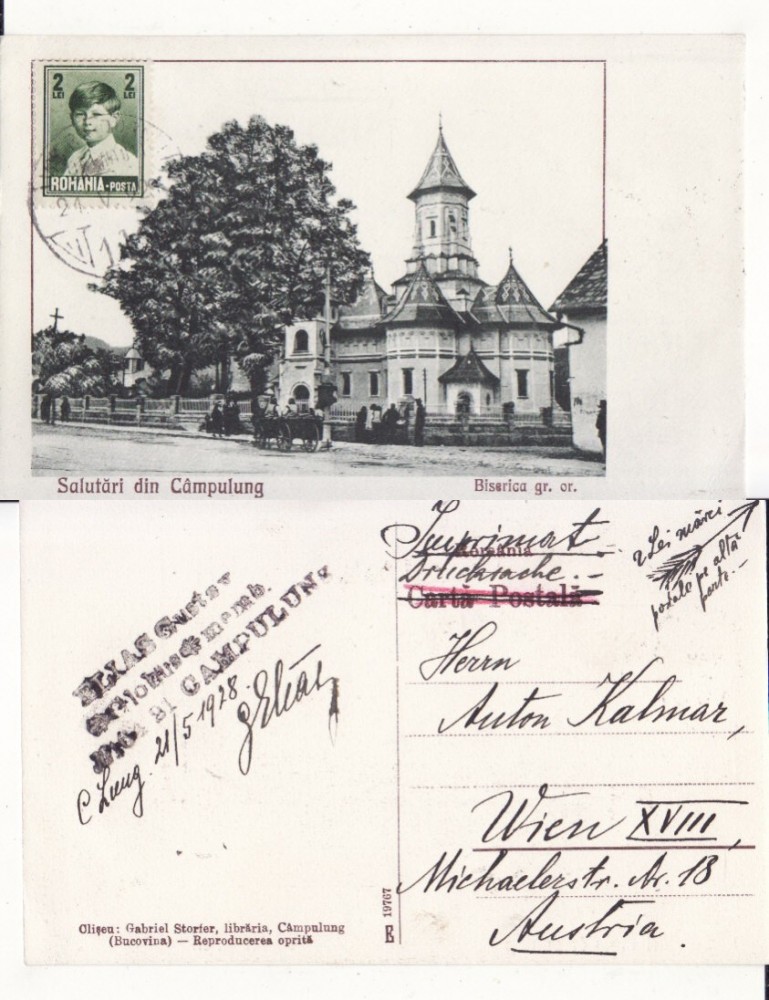 2 2
LEI LEI
ROMANIA·POSTA
21 V
VI 11
Salutări din Câmpulung
Biserica gr. or.
Imprimat
România
Drucksache.-
Carta Postală
2 Lei mărci
poxale pe altă
parte.-
ELIAS Gustav
memb.
CAMPULUNG
C Lung. 21/5 1928.
gEliáş
Herrn
Anton Kalmar,
Wien XVIII,
Michaelerstr. Nr. 18
Austria.
19767
Clișeu: Gabriel Storfer, librăria, Câmpulung
(Bucovina) — Reproducerea oprită